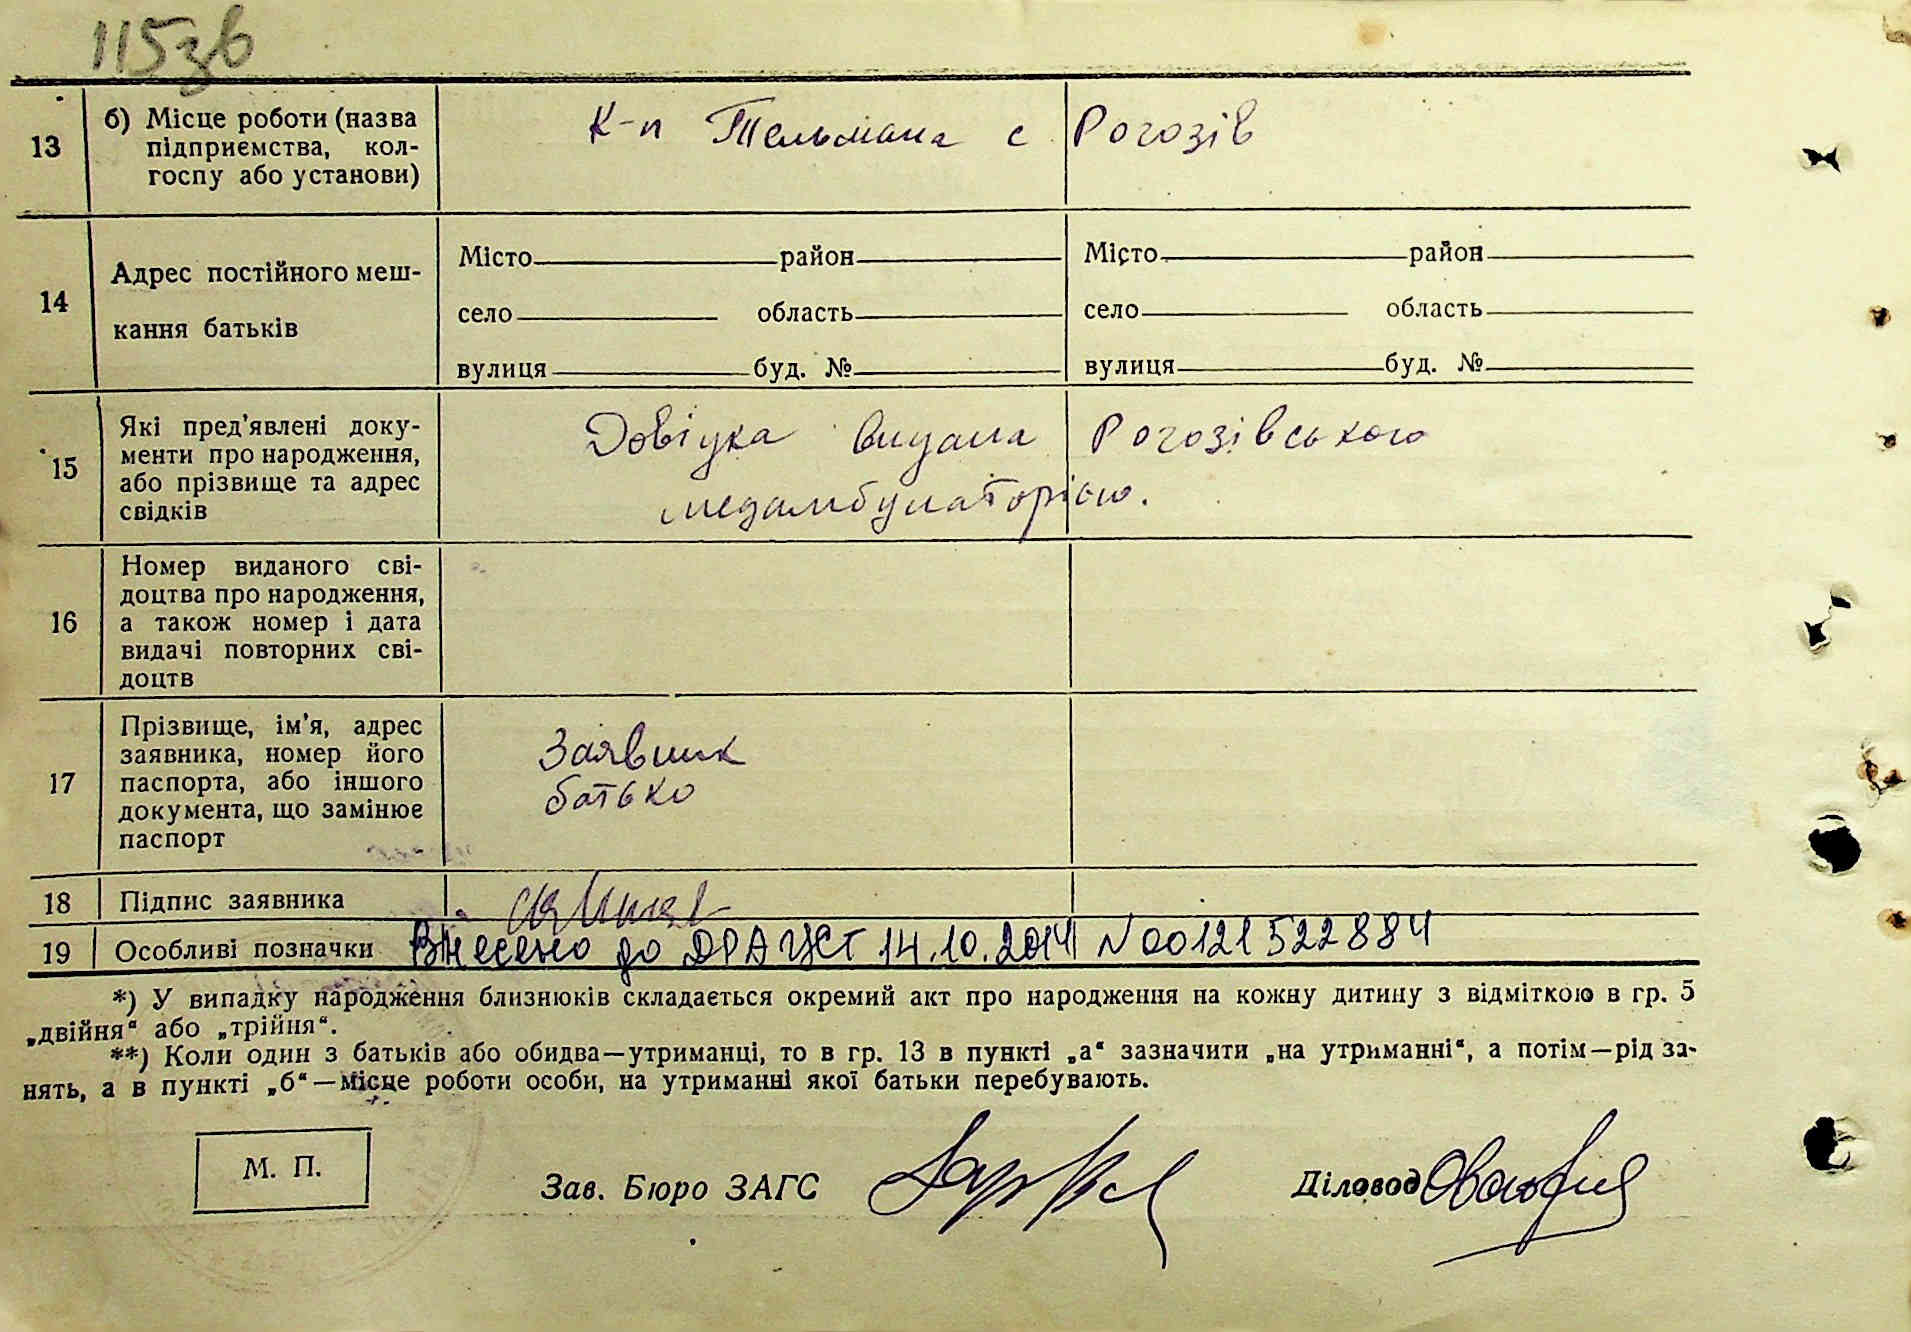 115зв
13 б) Місце роботи (назва підприємства, кол-
госпу або установи)
К-п Тельмана с Рогозів
14 Адрес постійного меш-
кання батьків
Місто район Місто район
село область село область
вулиця буд. № вулиця буд. №
15 Які пред'явлені доку-
менти про народження,
або прізвище та адрес
свідків
Довідка видана Рогозівською
медамбулаторією.
16 Номер виданого сві-
доцтва про народження,
а також номер і дата
видачі повторних сві-
доцтв
17 Прізвище, ім'я, адрес
заявника, номер його
паспорта, або іншого
документа, що замінює
паспорт
Заявник
батько
18 Підпис заявника
19 Особливі позначки Внесено до ДРАЦСГ 14.10.2014 N00121522884
*) У випадку народження близнюків складається окремий акт про народження на кожну дитину з відміткою в гр. 5
„двійня“ або „трійня“.
**) Коли один з батьків або обидва—утриманці, то в гр. 13 в пункті „а“ зазначити „на утриманні“, а потім—рід за-
нять, а в пункті „б“—місце роботи особи, на утриманні якої батьки перебувають.
М. П.
Зав. Бюро ЗАГС Діловод